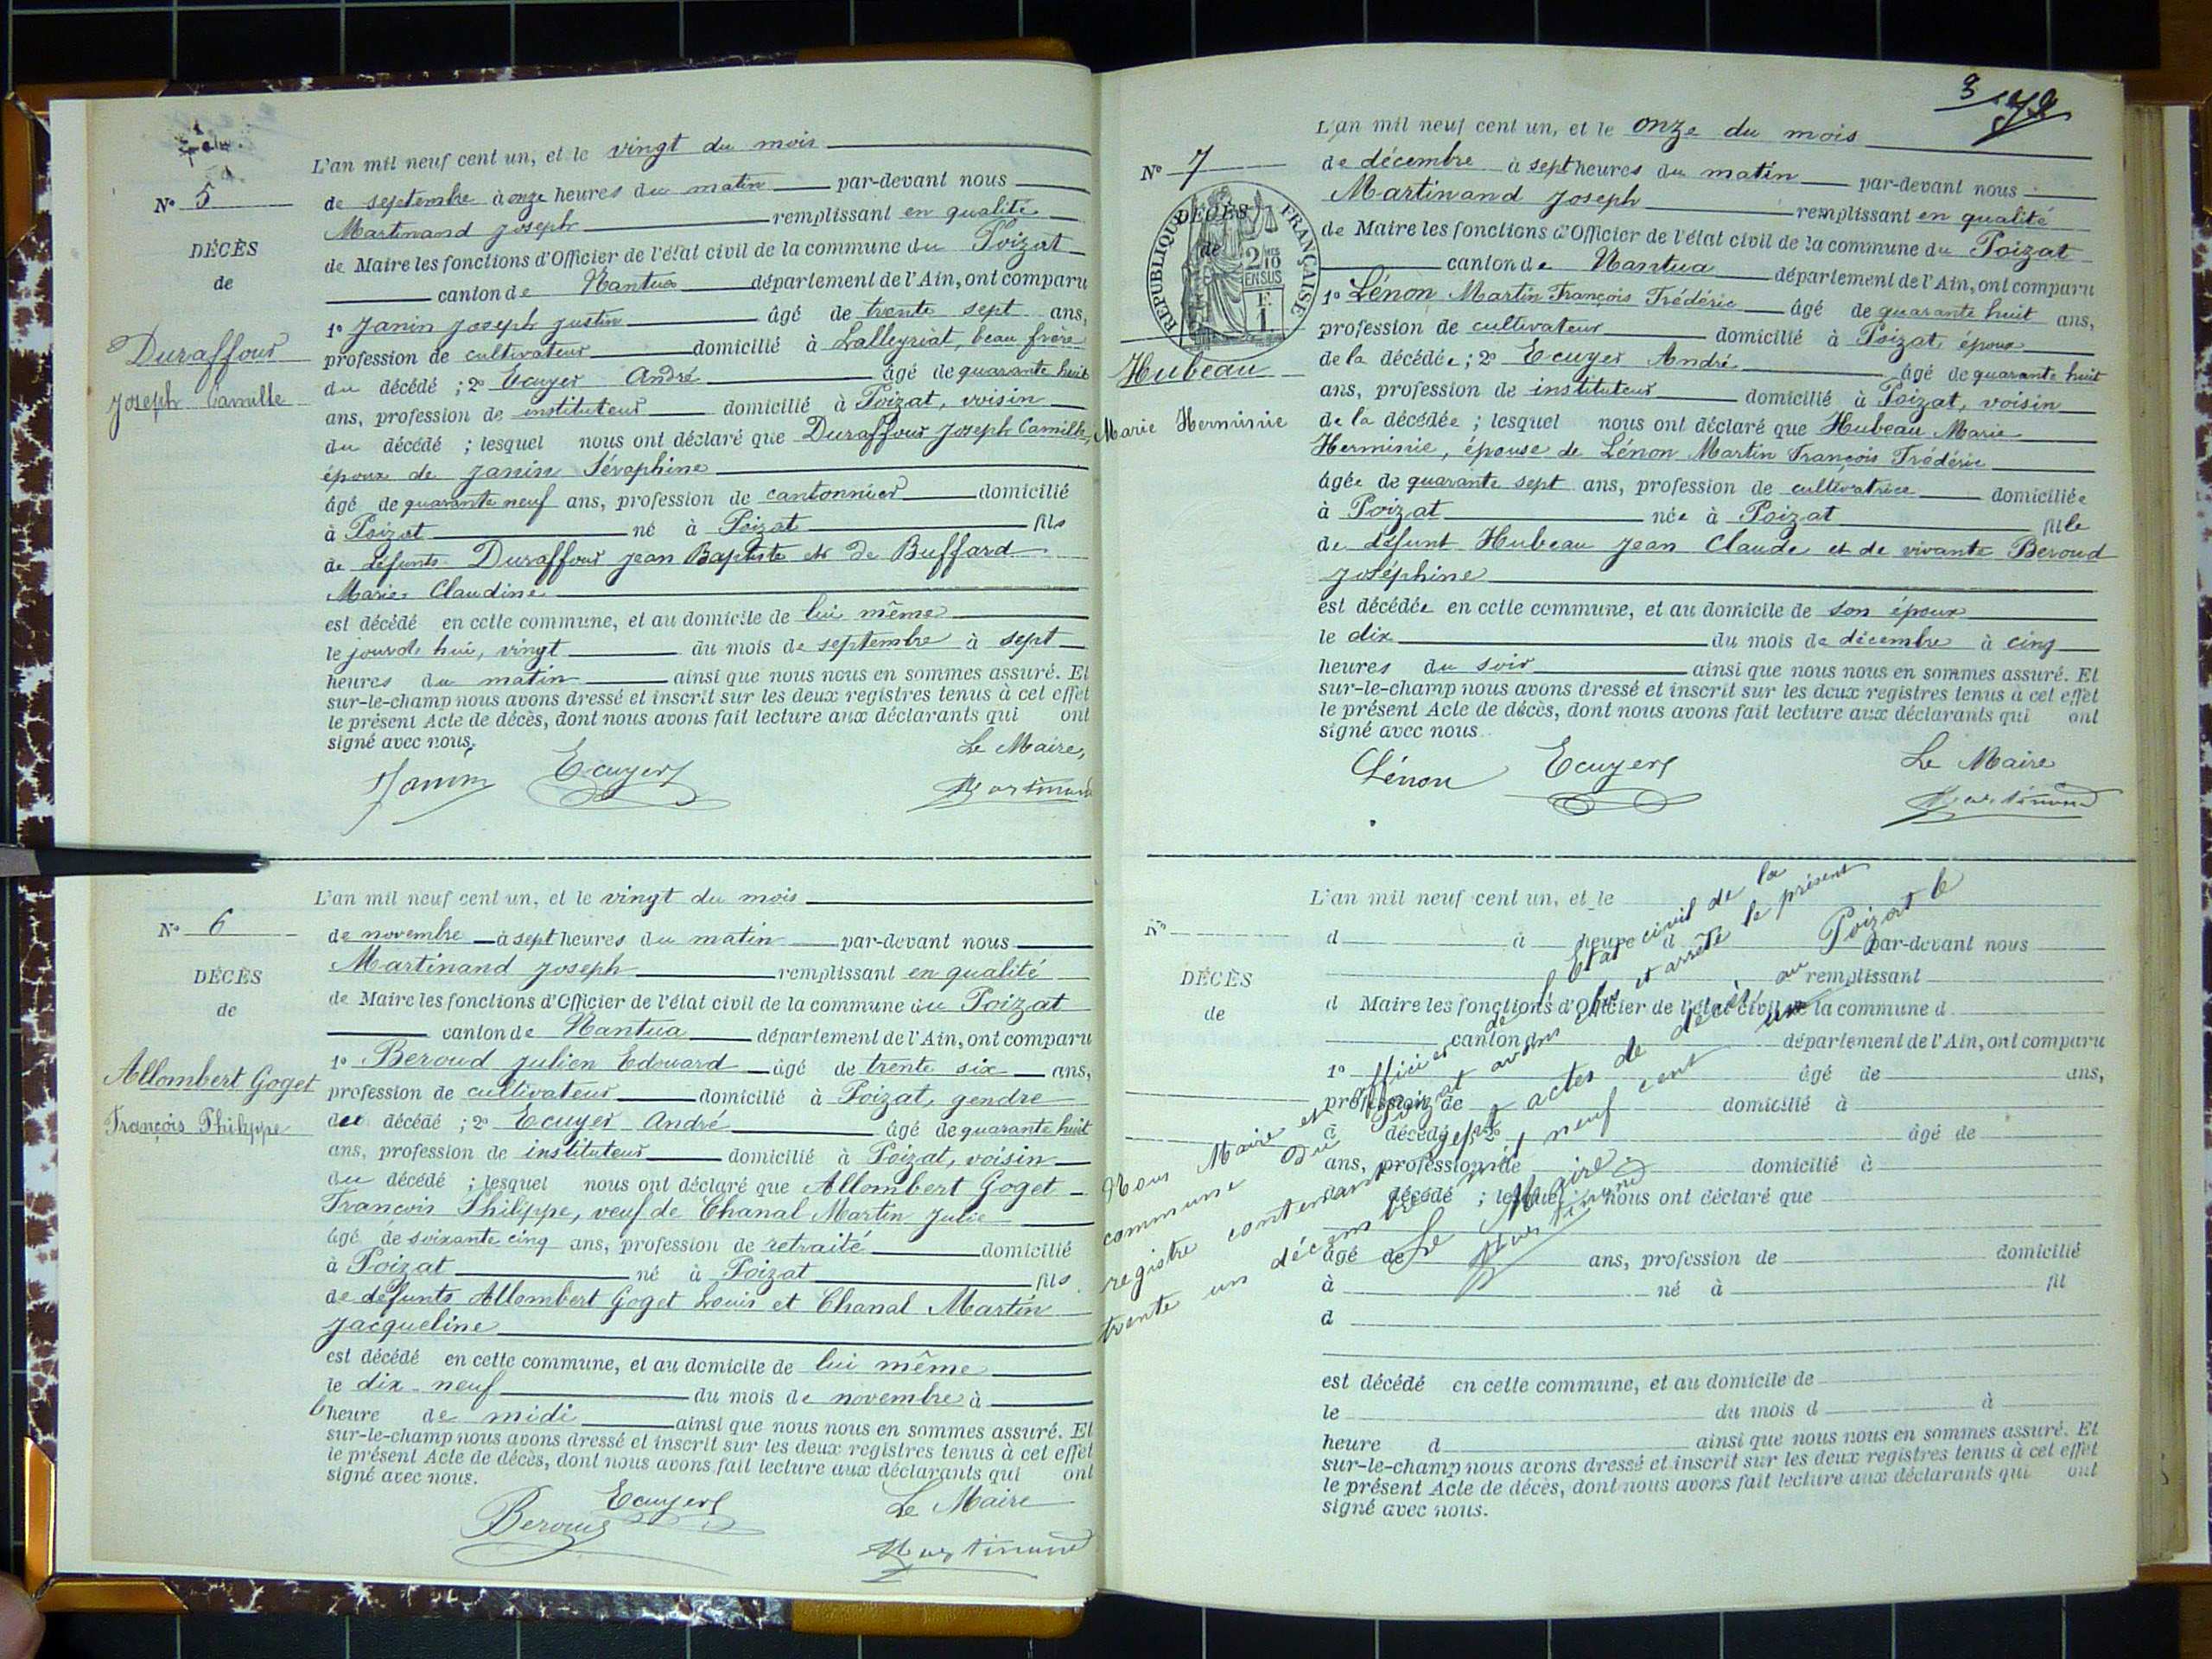 N° 5
DÉCÈS
de
Duraffour
Joseph Camille
L'an mil neuf cent un, et le vingt du mois
de septembre à onze heures du matin par-devant nous
Martinand Joseph remplissant en qualité
de Maire les fonctions d'Officier de l'état civil de la commune du Poizat
canton de Nantua département de l'Ain, ont comparu
1° Janin Joseph Justin âgé de trente sept ans,
profession de cultivateur domicilié à Lalleyriat, beau frère
du décédé ; 2° Ecuyer André âgé de quarante huit
ans, profession de instituteur domicilié à Poizat, voisin
du décédé ; lesquel nous ont déclaré que Duraffour Joseph Camille,
époux de Janin Séraphine
âgé de quarante neuf ans, profession de cantonnier domicilié
à Poizat né à Poizat fils
de défunts Duraffour Jean Baptiste et de Buffard
Marie Claudine
est décédé en cette commune, et au domicile de lui même
le jourd'hui, vingt du mois de septembre à sept
heures du matin ainsi que nous nous en sommes assuré. Et
sur-le-champ nous avons dressé et inscrit sur les deux registres tenus à cet effet
le présent Acte de décès, dont nous avons fait lecture aux déclarants qui ont
signé avec nous.
Le Maire,
Janin Ecuyer Martinand
N° 6
DÉCÈS
de
Allombert Goget
François Philippe
L'an mil neuf cent un, et le vingt du mois
de novembre à sept heures du matin par-devant nous
Martinand Joseph remplissant en qualité
de Maire les fonctions d'Officier de l'état civil de la commune du Poizat
canton de Nantua département de l'Ain, ont comparu
1° Beroud Julien Edouard âgé de trente six ans,
profession de cultivateur domicilié à Poizat, gendre
du décédé ; 2° Ecuyer André âgé de quarante huit
ans, profession de instituteur domicilié à Poizat, voisin
du décédé ; lesquel nous ont déclaré que Allombert Goget
François Philippe, veuf de Chanal Martin Julie
âgé de soixante cinq ans, profession de retraité domicilié
à Poizat né à Poizat fils
de défunts Allombert Goget Louis et Chanal Martin
Jacqueline
est décédé en cette commune, et au domicile de lui même
le dix-neuf du mois de novembre à
heure de midi ainsi que nous nous en sommes assuré. Et
sur-le-champ nous avons dressé et inscrit sur les deux registres tenus à cet effet
le présent Acte de décès, dont nous avons fait lecture aux déclarants qui ont
signé avec nous.
Beroud Ecuyer Le Maire
Martinand
3
N° 7
DÉCÈS
de
RÉPUBLIQUE FRANÇAISE
2/10 EN SUS
F. 1.
Hubeau
Marie Herminie
L'an mil neuf cent un, et le onze du mois
de décembre à sept heures du matin par-devant nous
Martinand Joseph remplissant en qualité
de Maire les fonctions d'Officier de l'état civil de la commune du Poizat
canton de Nantua département de l'Ain, ont comparu
1° Lénon Martin François Frédéric âgé de quarante huit ans,
profession de cultivateur domicilié à Poizat, époux
de la décédée ; 2° Ecuyer André âgé de quarante huit
ans, profession de instituteur domicilié à Poizat, voisin
de la décédée ; lesquel nous ont déclaré que Hubeau Marie
Herminie, épouse de Lénon Martin François Frédéric
âgée de quarante sept ans, profession de cultivatrice domiciliée
à Poizat née à Poizat fille
de défunt Hubeau Jean Claude et de vivante Beroud
Joséphine
est décédée en cette commune, et au domicile de son époux
le dix du mois de décembre à cinq
heures du soir ainsi que nous nous en sommes assuré. Et
sur-le-champ nous avons dressé et inscrit sur les deux registres tenus à cet effet
le présent Acte de décès, dont nous avons fait lecture aux déclarants qui ont
signé avec nous.
Lénon Ecuyer Le Maire
Martinand
N°
DÉCÈS
de
L'an mil neuf cent un, et le
d à heure d par-devant nous
remplissant
d Maire les fonctions d'Officier de l'état civil de la commune d
canton d département de l'Ain, ont comparu
1° âgé de ans,
profession de domicilié à
d décédé ; 2° âgé de
ans, profession de domicilié à
d décédé ; lesquel nous ont déclaré que
âgé de ans, profession de domicilié
à né à fil
d
est décédé en cette commune, et au domicile de
le du mois d à
heure d ainsi que nous nous en sommes assuré. Et
sur-le-champ nous avons dressé et inscrit sur les deux registres tenus à cet effet
le présent Acte de décès, dont nous avons fait lecture aux déclarants qui ont
signé avec nous.
Nous Maire et officier de l'Etat civil de la
commune du Poizat avons clos et arrêté le présent
registre contenant sept actes de décès au Poizat le
trente un décembre mil neuf cent un
Le Maire
Martinand